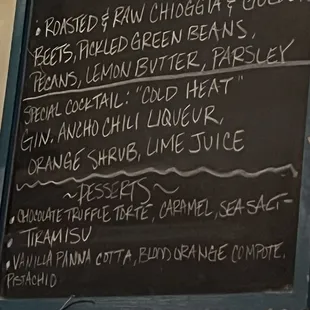 • ROASTED & RAW CHIOGGIA &
BEETS, PICKLED GREEN BEANS,
PECANS, LEMON BUTTER, PARSLEY
SPECIAL COCKTAIL: "COLD HEAT"
GIN, ANCHO CHILI LIQUEUR,
ORANGE SHRUB, LIME JUICE
~DESSERTS~
• CHOCOLATE TRUFFLE TORTE, CARAMEL, SEA SALT
• TIRAMISU
• VANILLA PANNA COTTA, BLOOD ORANGE COMPOTE,
PISTACHIO